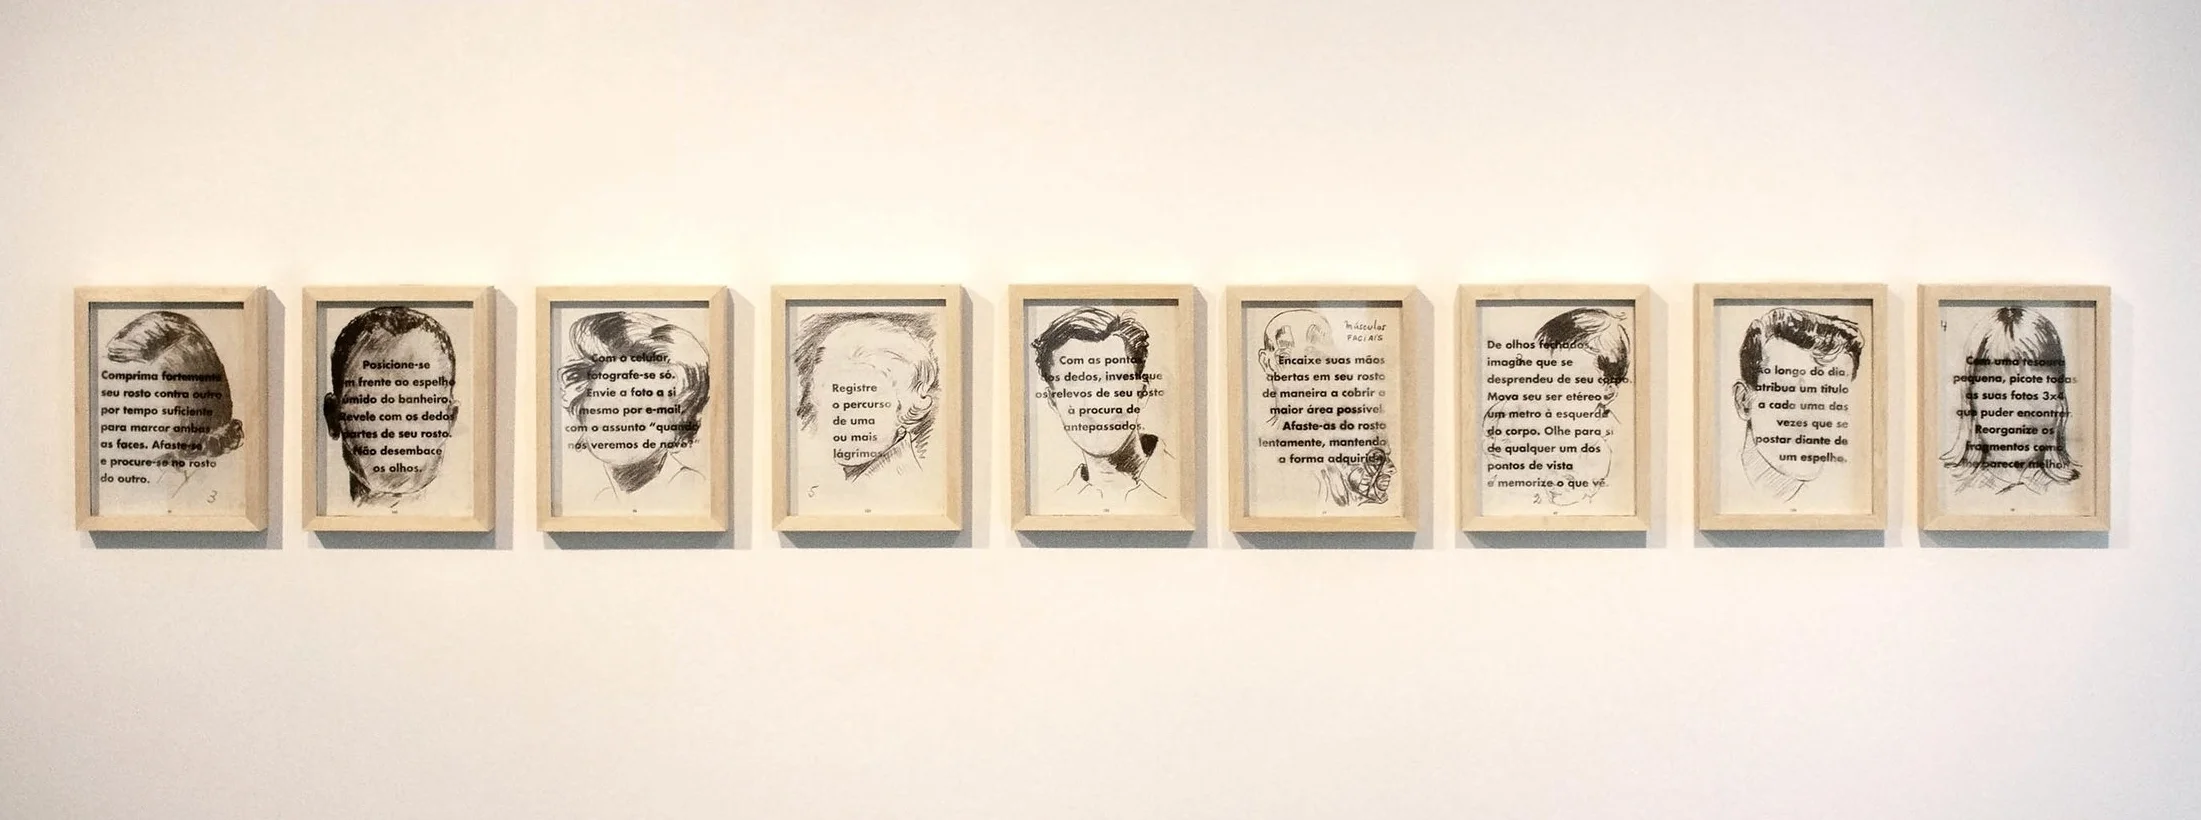 Comprima fortemente
seu rosto contra outro
por tempo suficiente
para marcar ambas
as faces. Afaste-se
e procure-se no rosto
do outro.
3
Posicione-se
em frente ao espelho
úmido do banheiro.
Revele com os dedos
partes de seu rosto.
Não desembace
os olhos.
Com o celular,
fotografe-se só.
Envie a foto a si
mesmo por e-mail,
com o assunto “quando
nos veremos de novo?”
Registre
o percurso
de uma
ou mais
lágrimas.
5
Com as pontas
dos dedos, investigue
os relevos de seu rosto
à procura de
antepassados.
músculos
FACIAIS
Encaixe suas mãos
abertas em seu rosto
de maneira a cobrir a
maior área possível.
Afaste-as do rosto
lentamente, mantendo
a forma adquirida.
De olhos fechados,
imagine que se
desprendeu de seu corpo.
Mova seu ser etéreo
um metro à esquerda
do corpo. Olhe para si
de qualquer um dos
pontos de vista
e memorize o que vê.
2
Ao longo do dia,
atribua um título
a cada uma das
vezes que se
postar diante de
um espelho.
4
Com uma tesoura
pequena, picote todas
as suas fotos 3x4
que puder encontrar.
Reorganize os
fragmentos como
lhe parecer melhor.